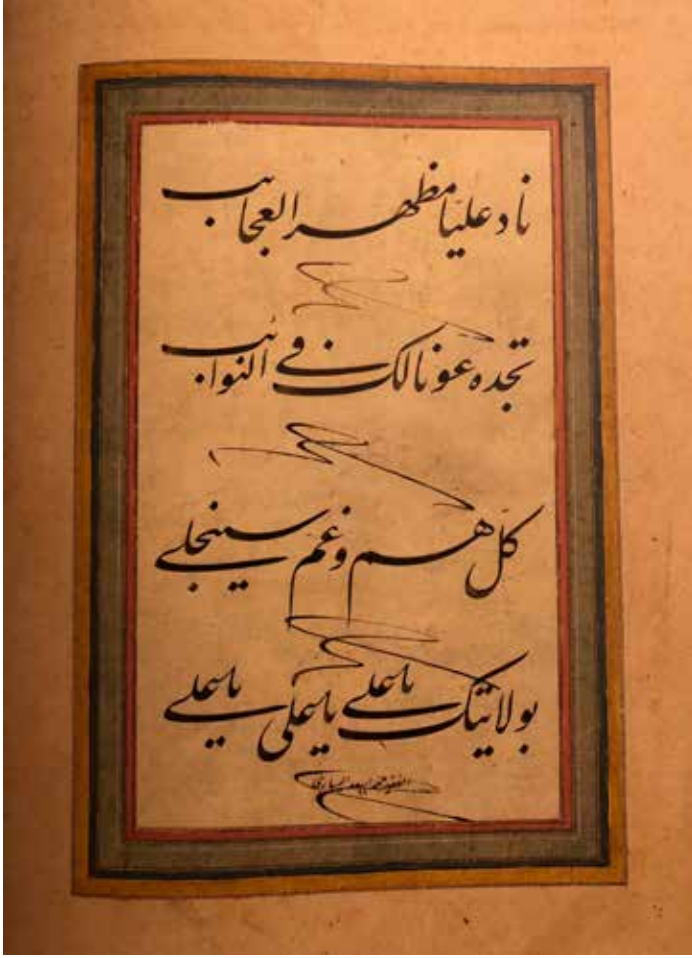 ناد علیّا مظهر العجایب
تجده عونا لک فے النوائب
کلّ هم و غمّ سینجلے
بولایتک یا علے یا علی یا علے